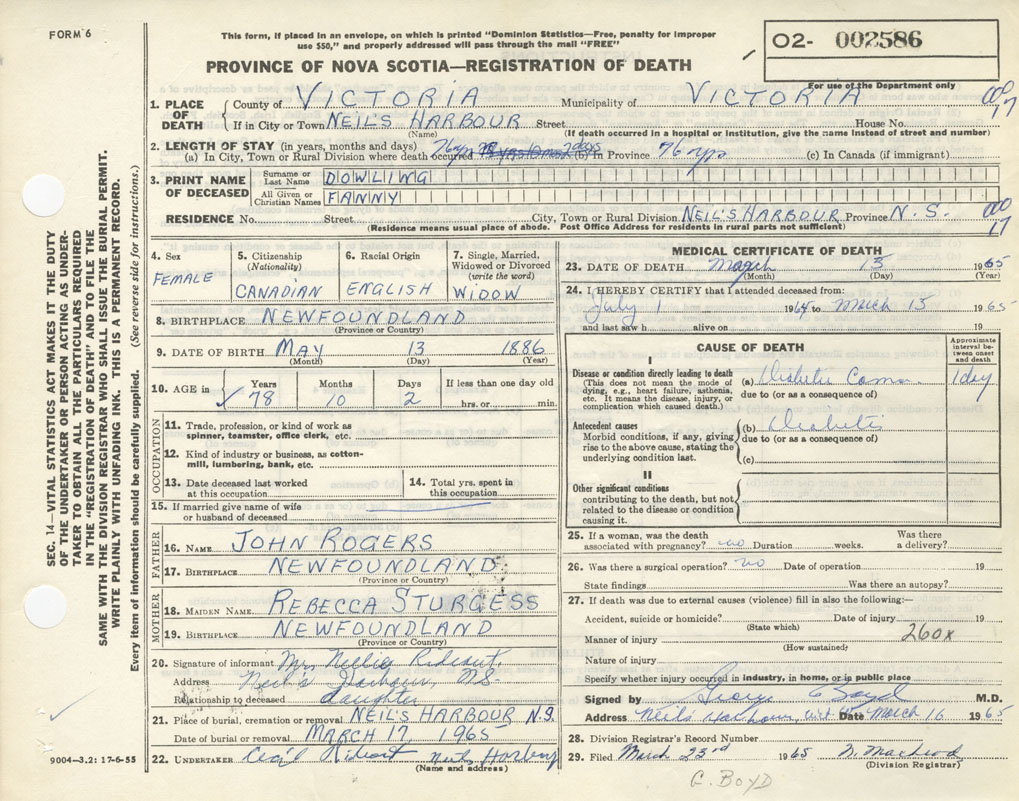 FORM 6
This form, if placed in an envelope, on which is printed "Dominion Statistics—Free, penalty for improper
use $50," and properly addressed will pass through the mail "FREE"
PROVINCE OF NOVA SCOTIA—REGISTRATION OF DEATH
02- 002586
For use of the Department only
1. PLACE OF DEATH
County of VICTORIA Municipality of VICTORIA
If in City or Town NEIL'S HARBOUR Street House No.
(Name) (If death occurred in a hospital or institution, give the name instead of street and number)
2. LENGTH OF STAY (in years, months and days)
(a) In City, Town or Rural Division where death occurred 76 yrs (b) In Province 76 yrs (c) In Canada (if immigrant)
3. PRINT NAME OF DECEASED
Surname or Last Name DOWLING
All Given or Christian Names FANNY
RESIDENCE No. Street City, Town or Rural Division NEIL'S HARBOUR Province N.S.
(Residence means usual place of abode. Post Office Address for residents in rural parts not sufficient)
SEC. 14—VITAL STATISTICS ACT MAKES IT THE DUTY
OF THE UNDERTAKER OR PERSON ACTING AS UNDER-
TAKER TO OBTAIN ALL THE PARTICULARS REQUIRED
IN THE "REGISTRATION OF DEATH" AND TO FILE THE
SAME WITH THE DIVISION REGISTRAR WHO SHALL ISSUE THE BURIAL PERMIT.
WRITE PLAINLY WITH UNFADING INK. THIS IS A PERMANENT RECORD.
Every item of information should be carefully supplied. (See reverse side for instructions.)
4. Sex
FEMALE
5. Citizenship
(Nationality)
CANADIAN
6. Racial Origin
ENGLISH
7. Single, Married,
Widowed or Divorced
(write the word)
WIDOW
8. BIRTHPLACE NEWFOUNDLAND
(Province or Country)
9. DATE OF BIRTH MAY 13 1886
(Month) (Day) (Year)
10. AGE in Years Months Days If less than one day old
78 10 2 hrs. or min.
OCCUPATION
11. Trade, profession, or kind of work as
spinner, teamster, office clerk, etc.
12. Kind of industry or business, as cotton-
mill, lumbering, bank, etc.
13. Date deceased last worked
at this occupation
14. Total yrs. spent in
this occupation
15. If married give name of wife
or husband of deceased
FATHER
16. NAME JOHN ROGERS
17. BIRTHPLACE NEWFOUNDLAND
(Province or Country)
MOTHER
18. MAIDEN NAME REBECCA STURGESS
19. BIRTHPLACE NEWFOUNDLAND
(Province or Country)
20. Signature of informant Mrs. Nellie Rideout.
Address Neil's Harbour, NS.
Relationship to deceased daughter
21. Place of burial, cremation or removal NEIL'S HARBOUR N.S.
Date of burial or removal MARCH 17, 1965
22. UNDERTAKER Cecil Rideout Neils Harbour
(Name and address)
9004—3.2: 17-6-55
MEDICAL CERTIFICATE OF DEATH
23. DATE OF DEATH March 15 1965
(Month) (Day) (Year)
24. I HEREBY CERTIFY that I attended deceased from:
July 1 1964 to March 15 1965
and last saw h alive on 19
CAUSE OF DEATH
Approximate
interval be-
tween onset
and death
I
Disease or condition directly leading to death
(This does not mean the mode of
dying, e.g., heart failure, asthenia,
etc. It means the disease, injury, or
complication which caused death.)
(a) Diabetic Coma 1 day
due to (or as a consequence of)
Antecedent causes
Morbid conditions, if any, giving
rise to the above cause, stating the
underlying condition last.
(b) Diabetes
due to (or as a consequence of)
(c)
II
Other significant conditions
contributing to the death, but not
related to the disease or condition
causing it.
25. If a woman, was the death
associated with pregnancy? no Duration weeks. Was there
a delivery?
26. Was there a surgical operation? no Date of operation 19
State findings Was there an autopsy?
27. If death was due to external causes (violence) fill in also the following:—
Accident, suicide or homicide? Date of injury 19
(State which)
260x
Manner of injury
(How sustained)
Nature of injury
Specify whether injury occurred in industry, in home, or in public place
Signed by George C Boyd M.D.
Address Neil's Harbour, Date March 16 1965
28. Division Registrar's Record Number
29. Filed March 23rd 1965
(Division Registrar)
C. BOYD